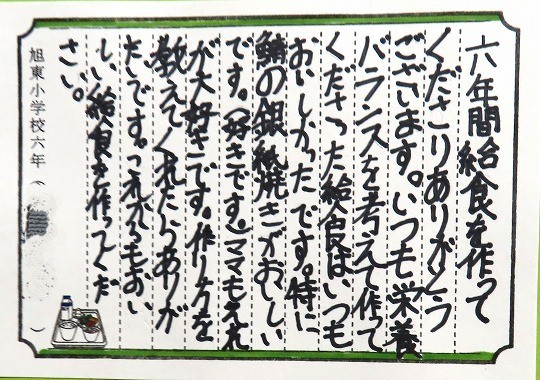 六年間給食を作って
くださりありがとう
ございます。いつも栄養
バランスを考えて作って
くださった給食はいつも
おいしかったです。特に
鯖の銀紙焼きがおいしい
です。(好きです)ママもそれ
が大好きです。作り方を
教えてくれたらありが
たいです。これからもおい
しい給食を作ってくだ
さい。
旭東小学校六年( )